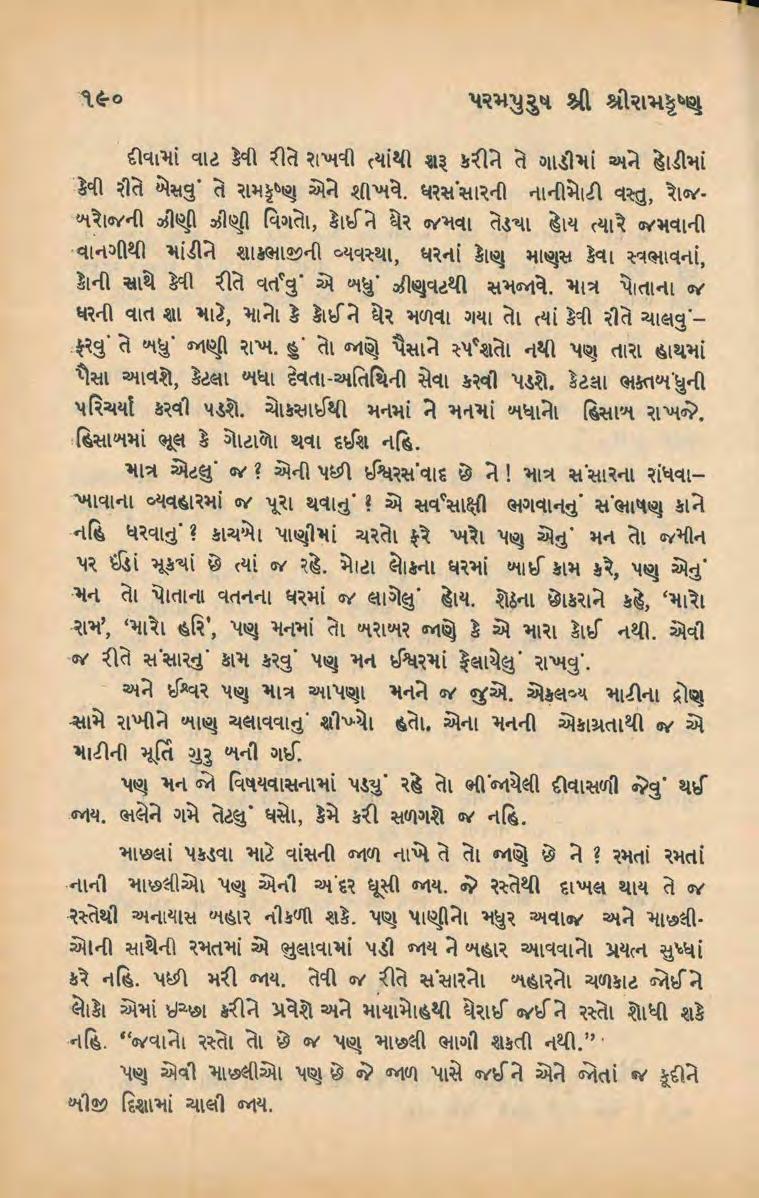 ૧૯૦ પરમપુરુષ શ્રી શ્રીરામકૃષ્ણ
દીવામાં વાટ કેવી રીતે રાખવી ત્યાંથી શરૂ કરીને તે ગાડીમાં અને હોડીમાં
કેવી રીતે બેસવું તે રામકૃષ્ણ એને શીખવે. ઘરસંસારની નાનીમોટી વસ્તુ, રોજ-
બરોજની ઝીણી ઝીણી વિગતો, કોઈને ઘેર જમવા તેડ્યા હોય ત્યારે જમવાની
વાનગીથી માંડીને શાકભાજીની વ્યવસ્થા, ઘરનાં કોણ માણસ કેવા સ્વભાવનાં,
કોની સાથે કેવી રીતે વર્તવું એ બધું ઝીણવટથી સમજાવે. માત્ર પોતાના જ
ઘરની વાત શા માટે, માનો કે કોઈને ઘેર મળવા ગયા તો ત્યાં કેવી રીતે ચાલવું–
ફરવું તે બધું જાણી રાખ. હું તો જાણે પૈસાને સ્પર્શતો નથી પણ તારા હાથમાં
પૈસા આવશે, કેટલા બધા દેવતા-અતિથિની સેવા કરવી પડશે. કેટલા ભક્તબંધુની
પરિચર્યા કરવી પડશે. ચોકસાઈથી મનમાં ને મનમાં બધાનો હિસાબ રાખજે.
હિસાબમાં ભૂલ કે ગોટાળો થવા દઈશ નહિ.
માત્ર એટલું જ ? એની પછી ઈશ્વરસંવાદ છે ને! માત્ર સંસારના રાંધવા–
ખાવાના વ્યવહારમાં જ પૂરા થવાનું ? એ સર્વસાક્ષી ભગવાનનું સંભાષણ કાને
નહિ ધરવાનું ? કાચબો પાણીમાં ચરતો ફરે ખરો પણ એનું મન તો જમીન
પર ઈંડાં મૂક્યાં છે ત્યાં જ રહે. મોટા લોકના ઘરમાં બાઈ કામ કરે, પણ એનું
મન તો પોતાના વતનના ઘરમાં જ લાગેલું હોય. શેઠના છોકરાને કહે, ‘મારો
રામ’, ‘મારો હરિ’, પણ મનમાં તો બરાબર જાણે કે એ મારા કોઈ નથી. એવી
જ રીતે સંસારનું કામ કરવું પણ મન ઈશ્વરમાં ફેલાયેલું રાખવું.
અને ઈશ્વર પણ માત્ર આપણા મનને જ જુએ. એકલવ્ય માટીના દ્રોણ
સામે રાખીને બાણ ચલાવવાનું શીખ્યો હતો. એના મનની એકાગ્રતાથી જ એ
માટીની મૂર્તિ ગુરુ બની ગઈ.
પણ મન જો વિષયવાસનામાં પડ્યું રહે તો ભીંજાયેલી દીવાસળી જેવું થઈ
જાય. ભલેને ગમે તેટલું ઘસો, કેમે કરી સળગશે જ નહિ.
માછલાં પકડવા માટે વાંસની જાળ નાખે તે તો જાણે છે ને ? રમતાં રમતાં
નાની માછલીઓ પણ એની અંદર ઘૂસી જાય. જે રસ્તેથી દાખલ થાય તે જ
રસ્તેથી અનાયાસ બહાર નીકળી શકે. પણ પાણીનો મધુર અવાજ અને માછલી-
ઓની સાથેની રમતમાં એ ભુલાવામાં પડી જાય ને બહાર આવવાનો પ્રયત્ન સુધ્ધાં
કરે નહિ. પછી મરી જાય. તેવી જ રીતે સંસારનો બહારનો ચળકાટ જોઈને
લોકો એમાં ઇચ્છા કરીને પ્રવેશે અને માયામોહથી ઘેરાઈ જઈને રસ્તો શોધી શકે
નહિ. “જવાનો રસ્તો તો છે જ પણ માછલી ભાગી શકતી નથી.”
પણ એવી માછલીઓ પણ છે જે જાળ પાસે જઈને એને જોતાં જ કૂદીને
બીજી દિશામાં ચાલી જાય.